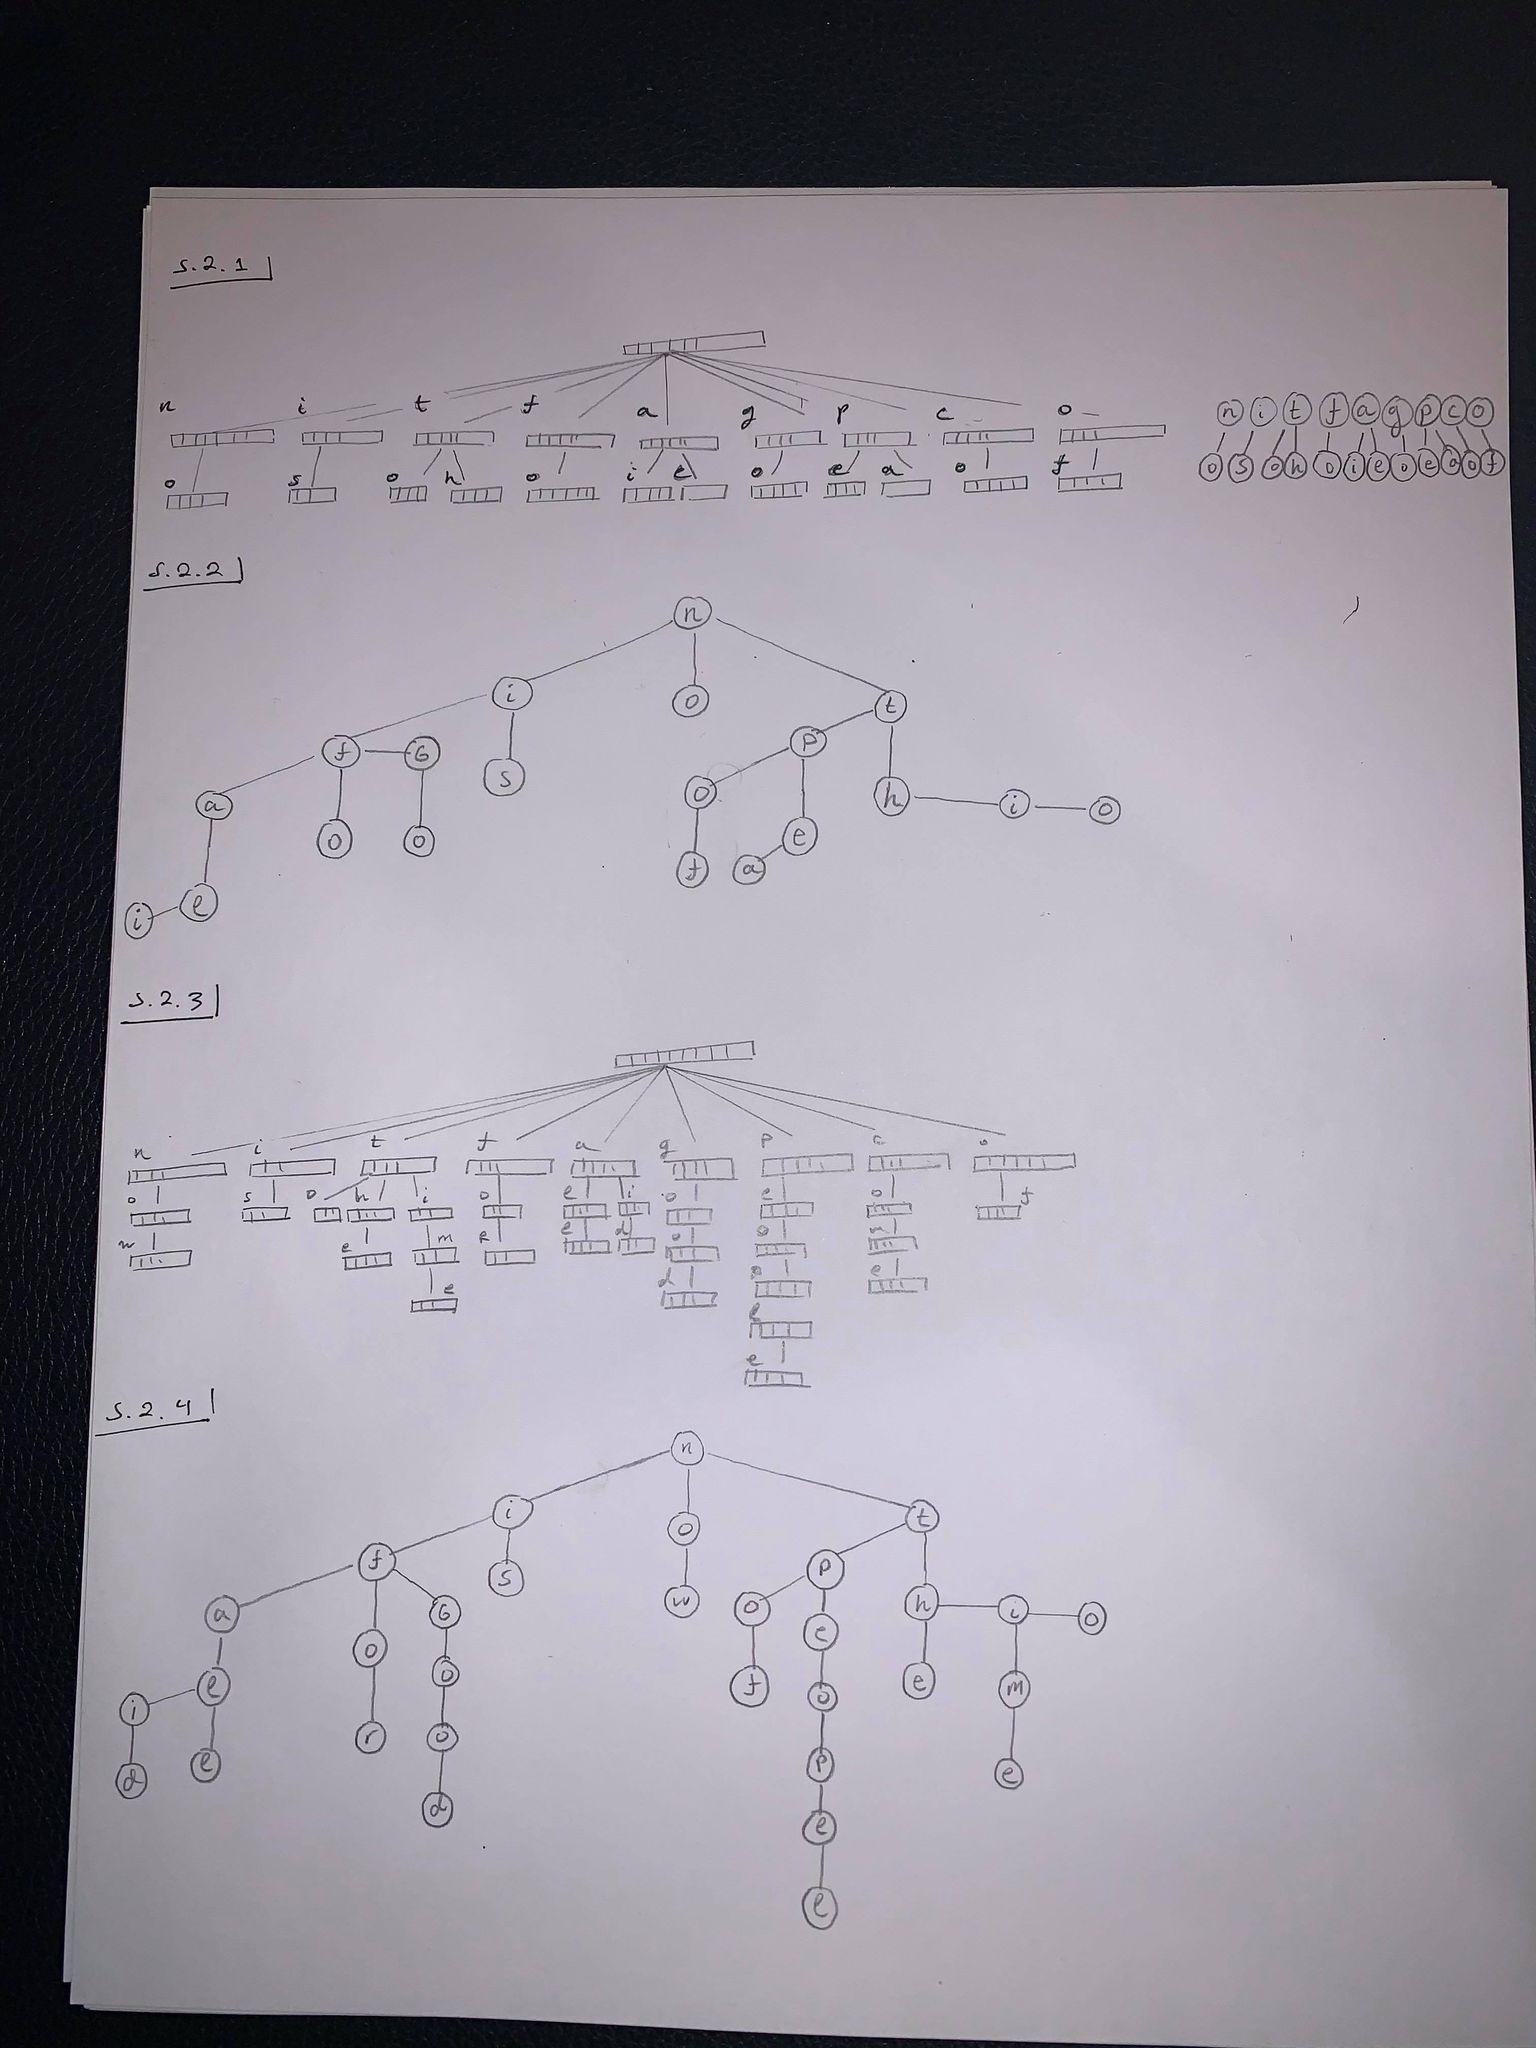 5.2.1
n i t f a g p c o
o s o h o i e o e a o f
n i t f a g p c o
o s o h o i e o e a o f
5.2.2
n
i o t
f G s p
a o o o e h i o
i e f a
5.2.3
n i t f a g p c o
o s o h i o e i o e o f
w e m r e d o o m
e d p e
l
e
5.2.4
n
i o t
f s w p
a o G o e h i o
i e r o f o e m
d e o p e
d l
e